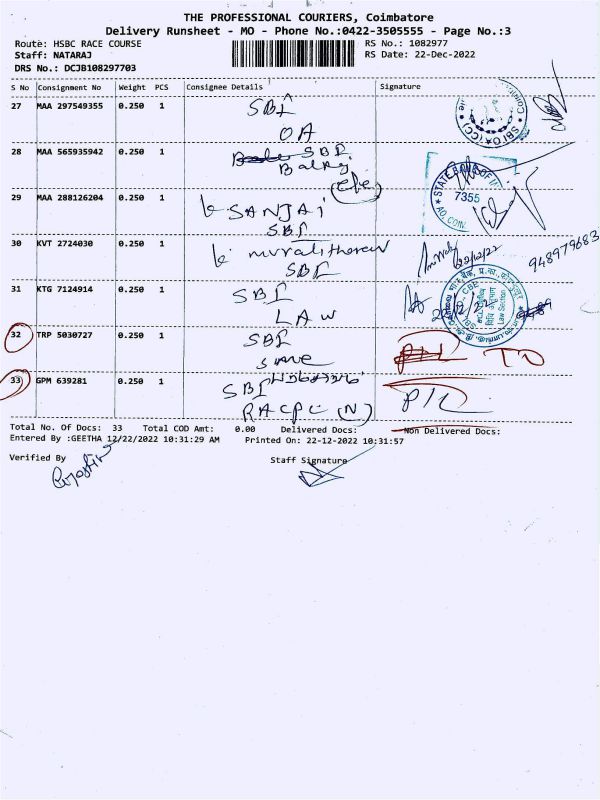 THE PROFESSIONAL COURIERS, Coimbatore
Delivery Runsheet - MO - Phone No.:0422-3505555 - Page No.:3
Route: HSBC RACE COURSE
RS No.: 1082977
Staff: NATARAJ
RS Date: 22-Dec-2022
DRS No.: DCJB108297703
S No Consignment No Weight PCS Consignee Details Signature
27 MAA 297549355 0.250 1 SBI
OA
SBI OA(CC)
28 MAA 565935942 0.250 1 SBI
(cbe)
STATE BANK OF
7355
AO, COIN
29 MAA 288126204 0.250 1 SANJAI
SBI
30 KVT 2724030 0.250 1
SBI
22/12/22
948979683
31 KTG 7124914 0.250 1 SBI
LAW
Law Section
32 TRP 5030727 0.250 1 SBI
TO
33 GPM 639281 0.250 1 SBI
RACPC (N)
Total No. Of Docs: 33 Total COD Amt: 0.00 Delivered Docs: Non Delivered Docs:
Entered By :GEETHA 12/22/2022 10:31:29 AM Printed On: 22-12-2022 10:31:57
Verified By Staff Signature